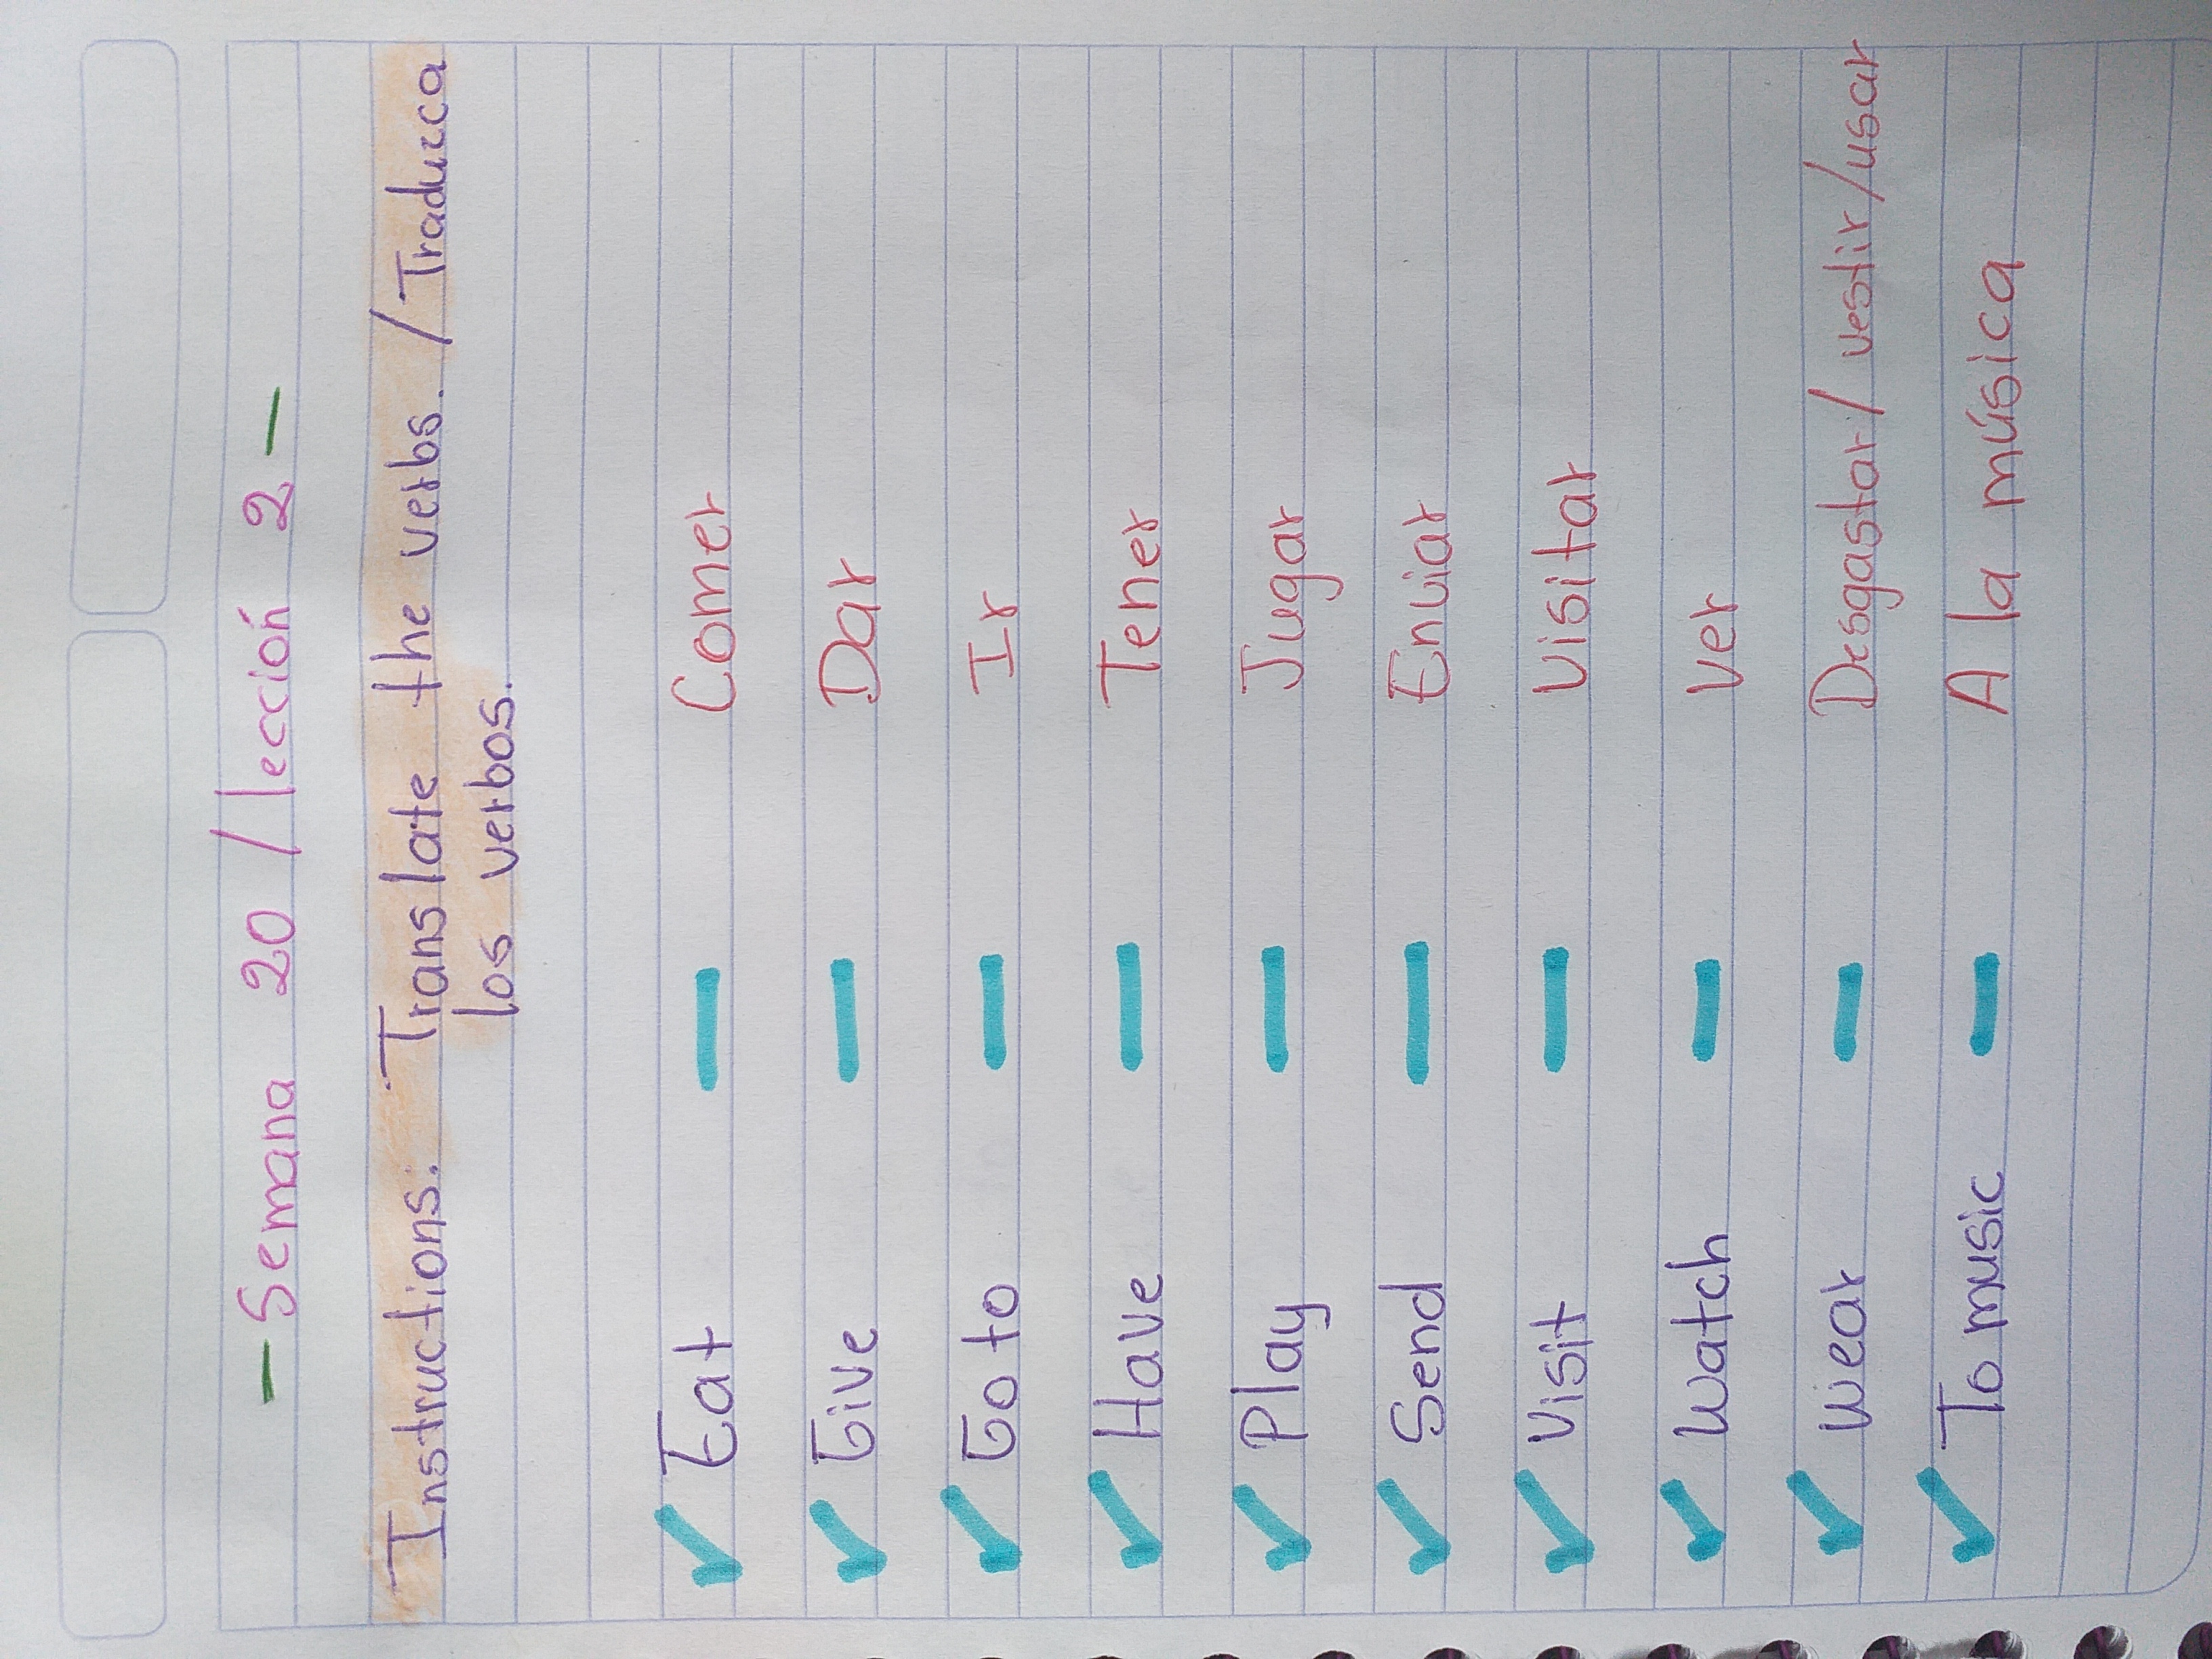 - Semana 20 / lección 2 -
Instructions: Translate the verbs. / Traduzca
los verbos.
✓ Eat - Comer
✓ Give - Dar
✓ Go to - Ir
✓ Have - Tener
✓ Play - Jugar
✓ Send - Enviar
✓ Visit - Visitar
✓ Watch - Ver
✓ Wear - Desgastar/vestir/usar
✓ To music - A la música